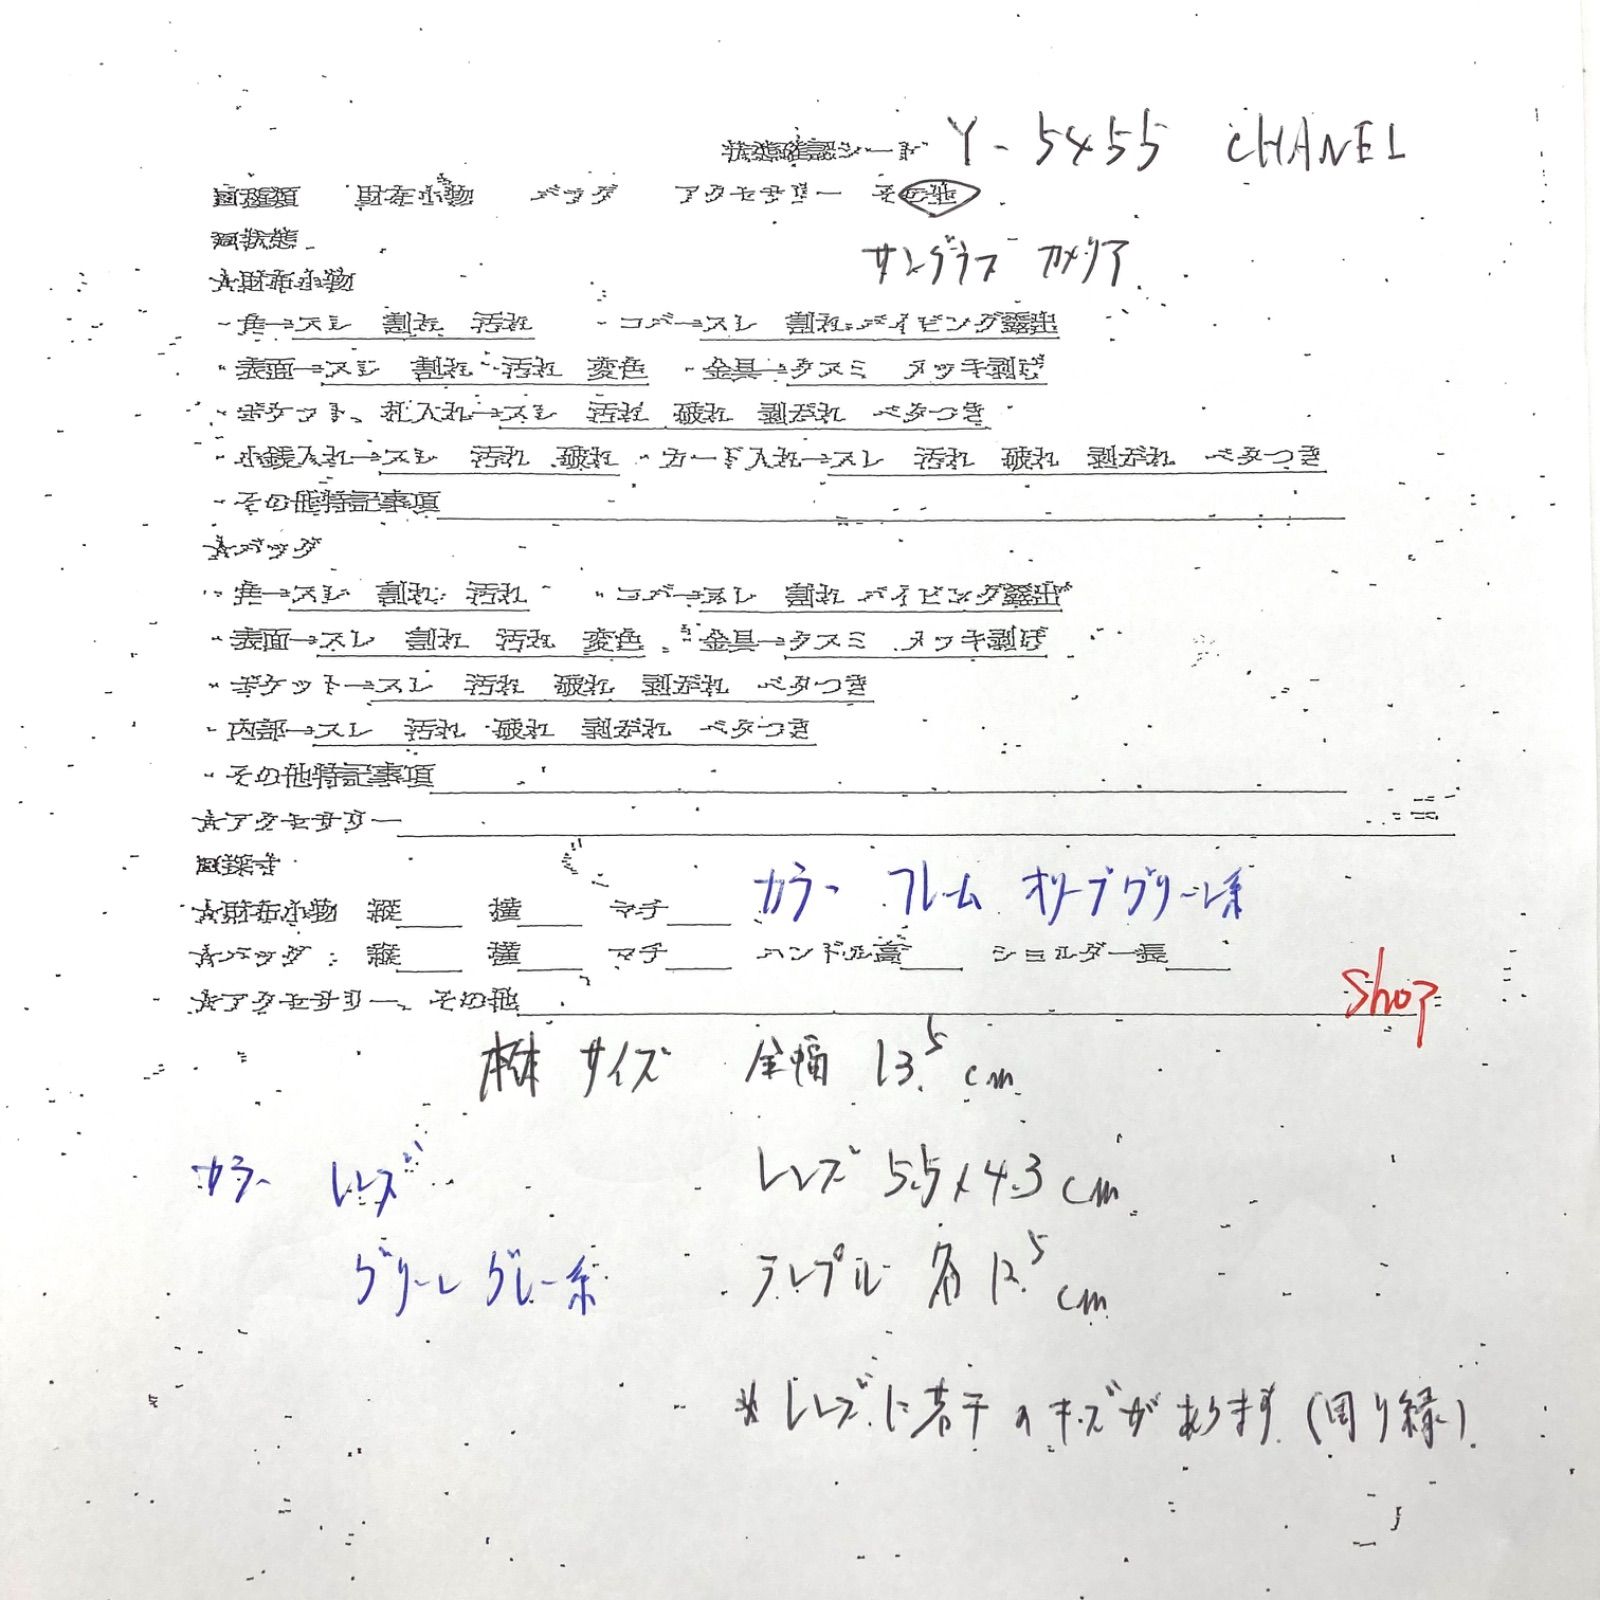 状態確認シート Y-5455 CHANEL
■種類 財布小物 バッグ アクセサリー その他
■状態
サングラス カメリア
☆財布小物
・角→スレ 割れ 汚れ ・コバ→スレ 割れ パイピング露出
・表面→スレ 割れ 汚れ 変色 ・金具→クスミ メッキ剥げ
・ポケット、札入れ→スレ 汚れ 破れ 剥がれ ベタつき
・小銭入れ→スレ 汚れ 破れ ・カード入れ→スレ 汚れ 破れ 剥がれ ベタつき
・その他特記事項
☆バッグ
・角→スレ 割れ 汚れ ・コバ→スレ 割れ パイピング露出
・表面→スレ 割れ 汚れ 変色 ・金具→クスミ メッキ剥げ
・ポケット→スレ 汚れ 破れ 剥がれ ベタつき
・内部→スレ 汚れ 破れ 剥がれ ベタつき
・その他特記事項
☆アクセサリー
■採寸
カラー フレーム オリーブグリーン系
☆財布小物 縦 横 マチ
☆バッグ : 縦 横 マチ ハンドル高 ショルダー長
☆アクセサリー、その他
shop
本体 サイズ 全幅 13.5 cm
カラー レンズ レンズ 5.5×4.3 cm
グリーン グレー系 テンプル 各 12.5 cm
※レンズに若干のキズがあります(周り縁)